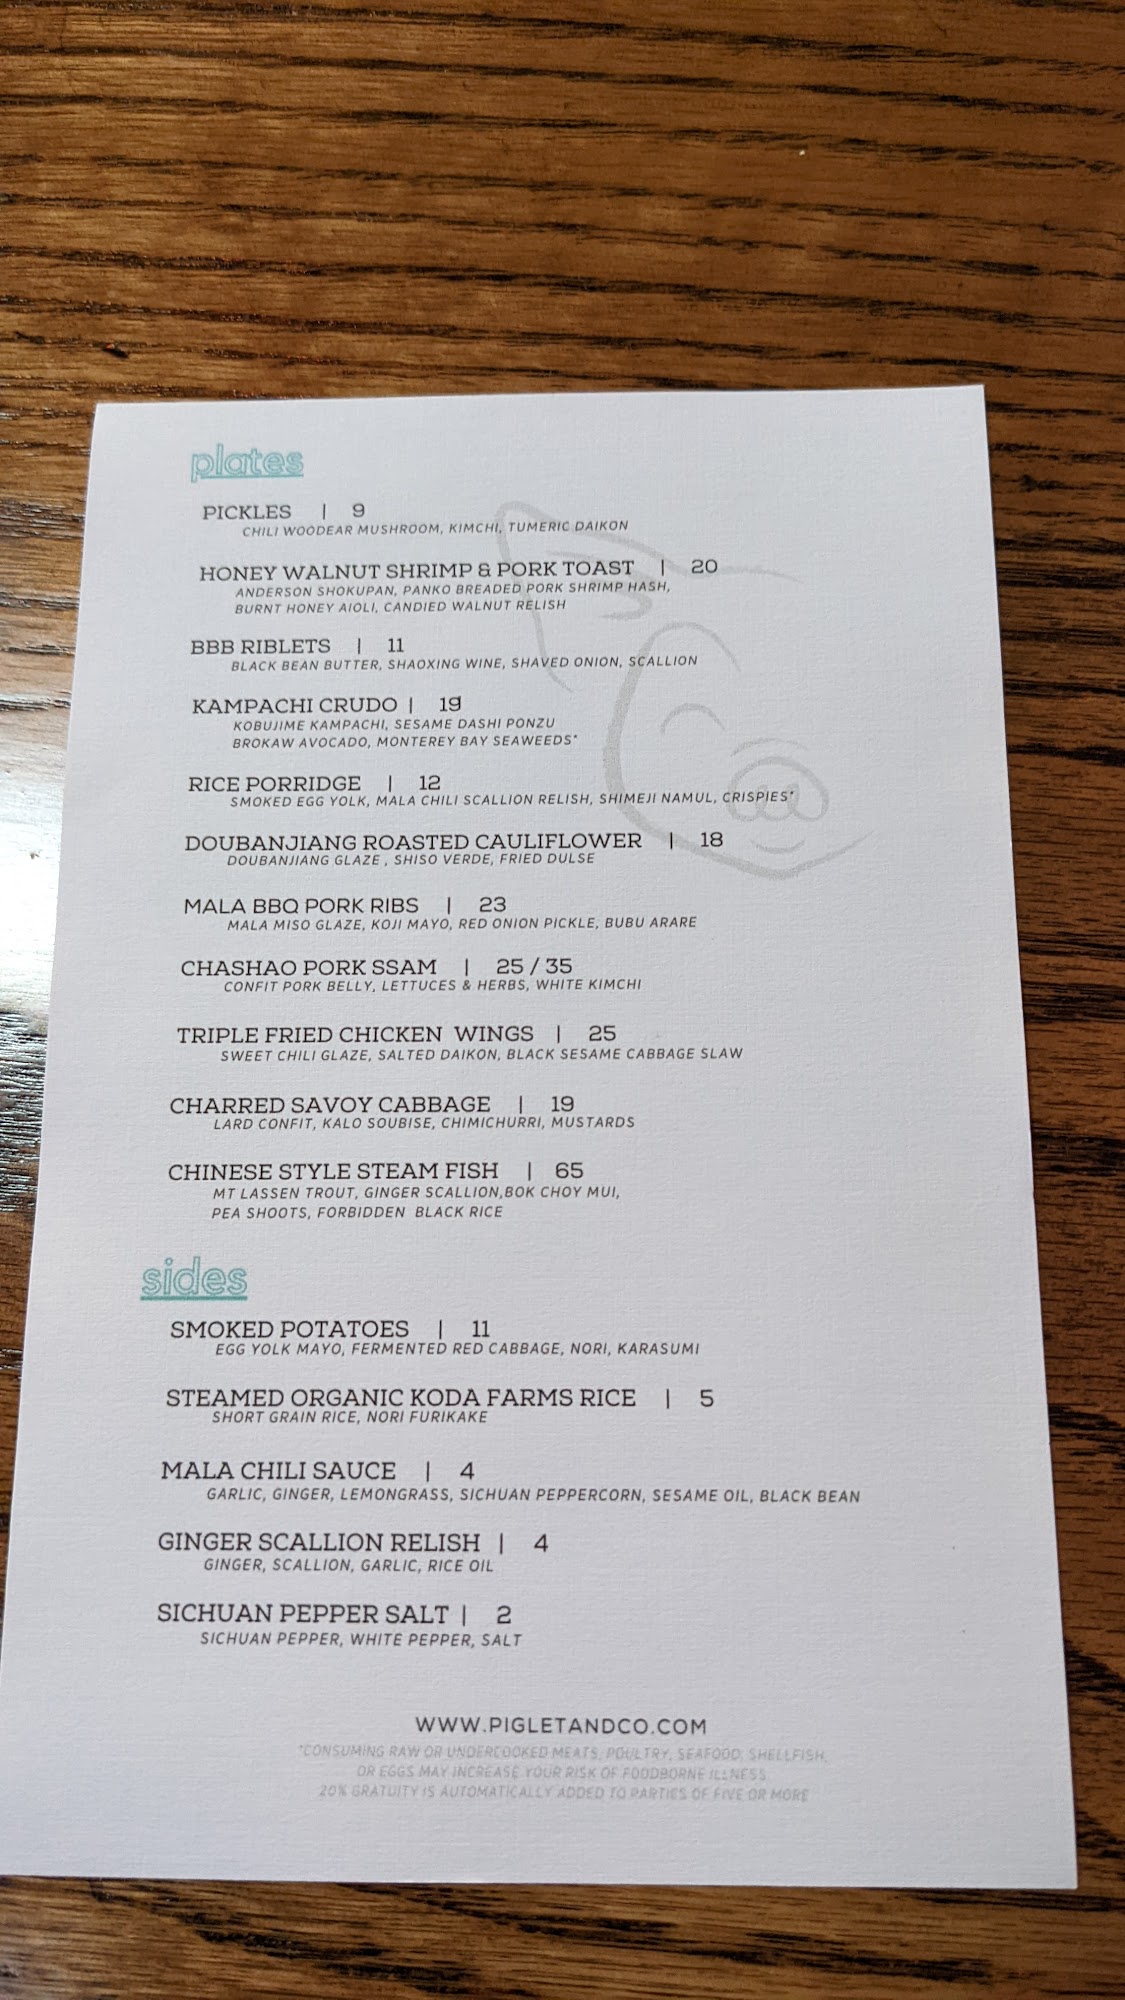 plates
PICKLES | 9
CHILI WOODEAR MUSHROOM, KIMCHI, TUMERIC DAIKON
HONEY WALNUT SHRIMP & PORK TOAST | 20
ANDERSON SHOKUPAN, PANKO BREADED PORK SHRIMP HASH,
BURNT HONEY AIOLI, CANDIED WALNUT RELISH
BBB RIBLETS | 11
BLACK BEAN BUTTER, SHAOXING WINE, SHAVED ONION, SCALLION
KAMPACHI CRUDO | 19
KOBUJIME KAMPACHI, SESAME DASHI PONZU
BROKAW AVOCADO, MONTEREY BAY SEAWEEDS*
RICE PORRIDGE | 12
SMOKED EGG YOLK, MALA CHILI SCALLION RELISH, SHIMEJI NAMUL, CRISPIES*
DOUBANJIANG ROASTED CAULIFLOWER | 18
DOUBANJIANG GLAZE , SHISO VERDE, FRIED DULSE
MALA BBQ PORK RIBS | 23
MALA MISO GLAZE, KOJI MAYO, RED ONION PICKLE, BUBU ARARE
CHASHAO PORK SSAM | 25 / 35
CONFIT PORK BELLY, LETTUCES & HERBS, WHITE KIMCHI
TRIPLE FRIED CHICKEN WINGS | 25
SWEET CHILI GLAZE, SALTED DAIKON, BLACK SESAME CABBAGE SLAW
CHARRED SAVOY CABBAGE | 19
LARD CONFIT, KALO SOUBISE, CHIMICHURRI, MUSTARDS
CHINESE STYLE STEAM FISH | 65
MT LASSEN TROUT, GINGER SCALLION,BOK CHOY MUI,
PEA SHOOTS, FORBIDDEN BLACK RICE
sides
SMOKED POTATOES | 11
EGG YOLK MAYO, FERMENTED RED CABBAGE, NORI, KARASUMI
STEAMED ORGANIC KODA FARMS RICE | 5
SHORT GRAIN RICE, NORI FURIKAKE
MALA CHILI SAUCE | 4
GARLIC, GINGER, LEMONGRASS, SICHUAN PEPPERCORN, SESAME OIL, BLACK BEAN
GINGER SCALLION RELISH | 4
GINGER, SCALLION, GARLIC, RICE OIL
SICHUAN PEPPER SALT | 2
SICHUAN PEPPER, WHITE PEPPER, SALT
WWW.PIGLETANDCO.COM
*CONSUMING RAW OR UNDERCOOKED MEATS, POULTRY, SEAFOOD, SHELLFISH,
OR EGGS MAY INCREASE YOUR RISK OF FOODBORNE ILLNESS
20% GRATUITY IS AUTOMATICALLY ADDED TO PARTIES OF FIVE OR MORE